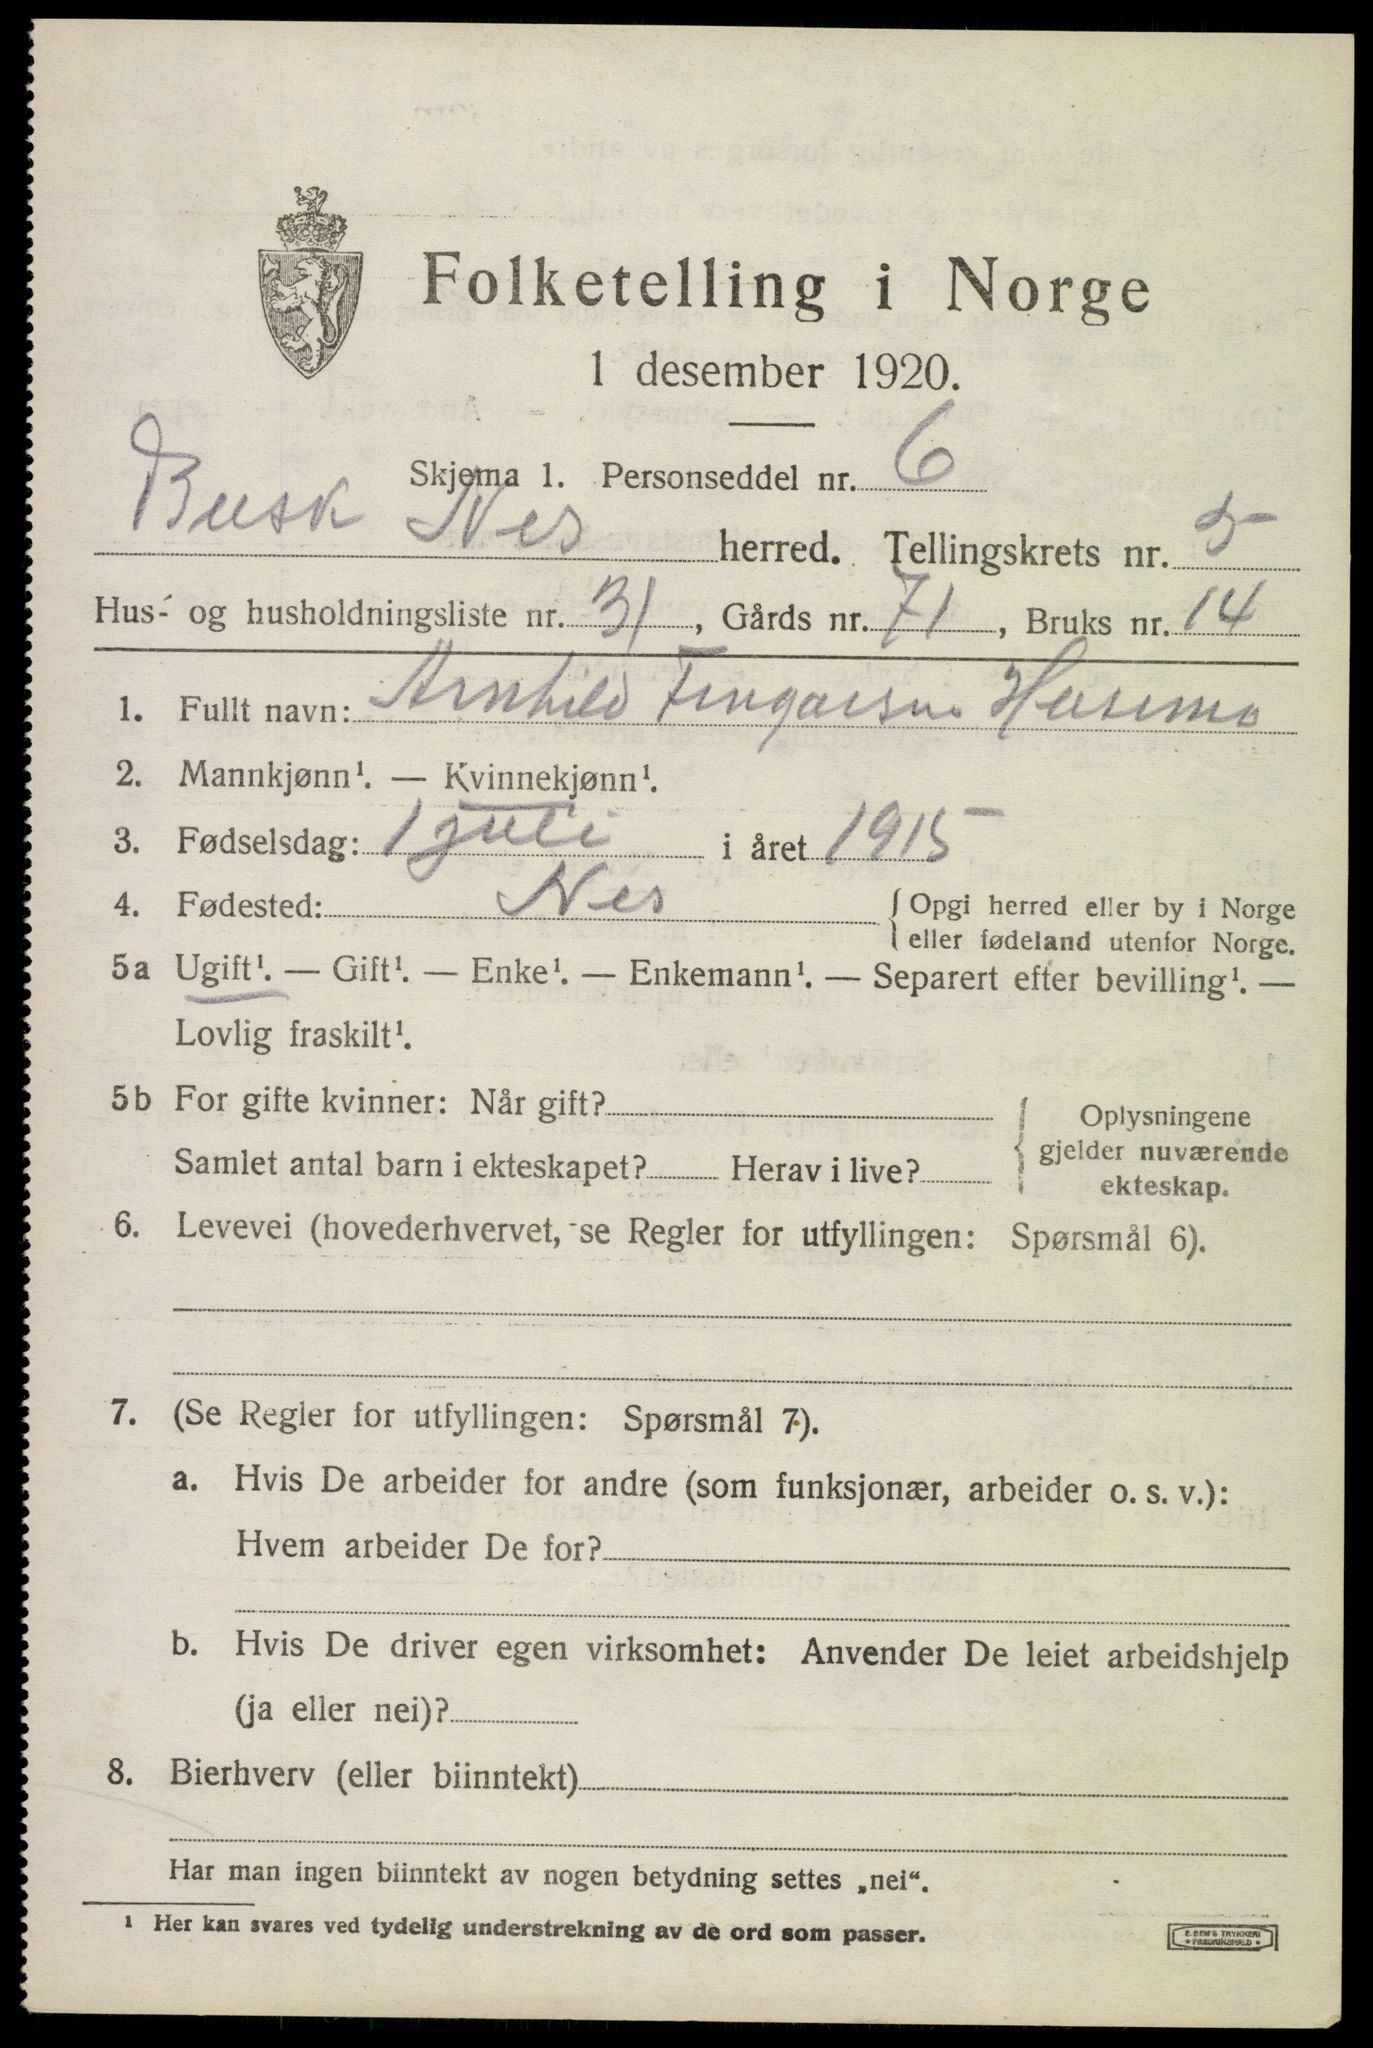 Folketelling i Norge
1 desember 1920.
Skjema 1. Personseddel nr. 6
Busk Nes herred. Tellingskrets nr. 5
Hus- og husholdningsliste nr. 31, Gårds nr. 71, Bruks nr. 14
1. Fullt navn: Arnhild
2. Mannkjønn¹. — Kvinnekjønn¹.
3. Fødselsdag: 1 juli i året 1915
4. Fødested: Nes { Opgi herred eller by i Norge
eller fødeland utenfor Norge.
5a Ugift¹. — Gift¹. — Enke¹. — Enkemann¹. — Separert efter bevilling¹. —
Lovlig fraskilt¹.
5b For gifte kvinner: Når gift?
Samlet antal barn i ekteskapet? Herav i live?
{ Oplysningene
gjelder nuværende
ekteskap.
6. Levevei (hovederhvervet, se Regler for utfyllingen: Spørsmål 6).
7. (Se Regler for utfyllingen: Spørsmål 7).
a. Hvis De arbeider for andre (som funksjonær, arbeider o. s. v.):
Hvem arbeider De for?
b. Hvis De driver egen virksomhet: Anvender De leiet arbeidshjelp
(ja eller nei)?
8. Bierhverv (eller biinntekt)
Har man ingen biinntekt av nogen betydning settes „nei“.
¹ Her kan svares ved tydelig understrekning av de ord som passer.
E. SEM'S TRYKKERI
FREDRIKSHALD